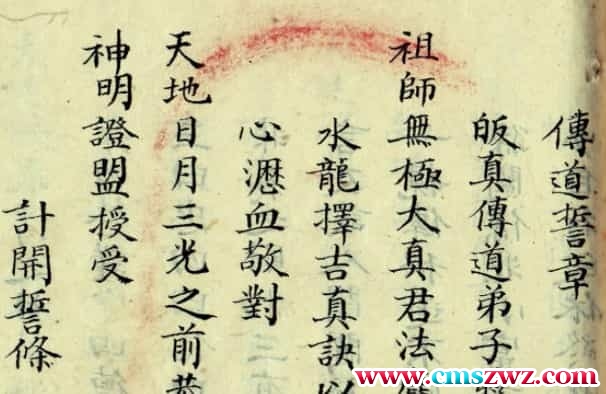 傳道誓章
皈真傳道弟子
祖師無極大真君法
水龍擇吉真訣以
心瀝血敬對
天地日月三光之前恭
神明證盟授受
計開誓條
www.cmszwz.com